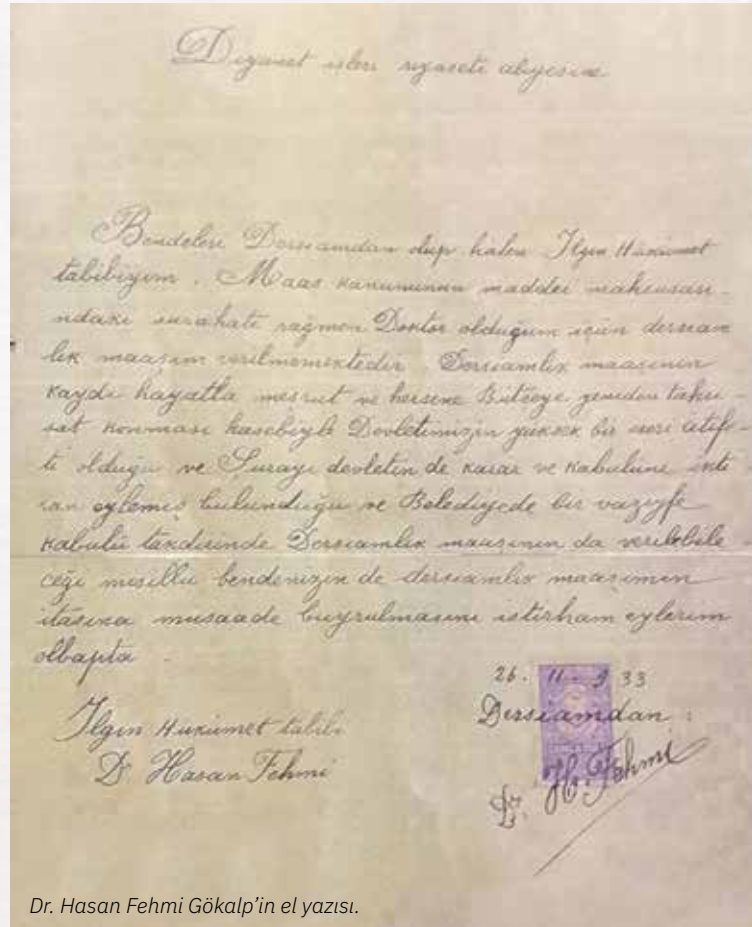 Diyanet işleri riyaseti aliyesine
Bendeleri Dersiamdan olup halen Ilgın Hükümet
tabibiyim. Maaş kanununun maddei mahsusası-
ndaki sarahate rağmen Doktor olduğum için dersiam
lık maaşım verilmemektedir. Dersiamlık maaşının
kaydı hayatla meşrut ve hersene Bütçeye yeniden tahsi-
sat konması hasebiyle Devletimizin yüksek bir eseri
olduğu ve Şurayı devletin de karar ve kabulüne ikti
ran eylemiş bulunduğu ve Belediyede bir vazife
kabulü takdirinde Dersiamlık maaşının da verilebile-
ceği misillu bendenizin de dersiamlık maaşımın
itasına musaade buyrulmasını istirham eylerim
olbapta
26. 11. 933
Dersiamdan:
Dr. H. Fehmi
Ilgın Hükümet tabibi
Dr. Hasan Fehmi
Dr. Hasan Fehmi Gökalp'in el yazısı.